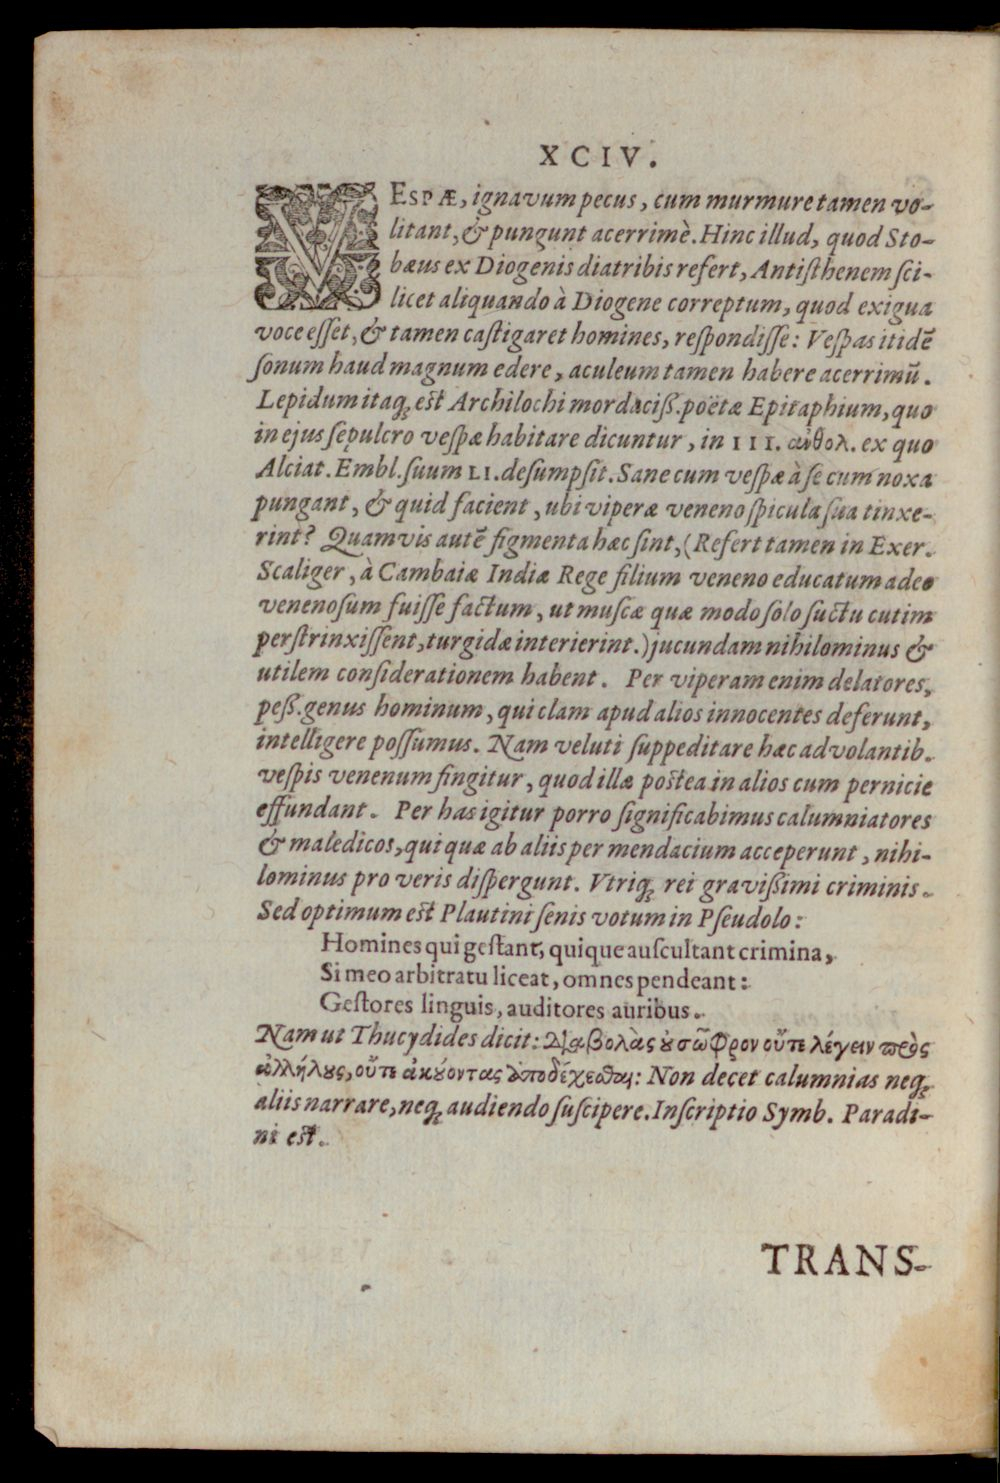 XCIV.
VESPÆ, ignavum pecus, cum murmure tamen vo-
litant, & pungunt acerrimè. Hinc illud, quod Sto-
bæus ex Diogenis diatribis refert, Antiſthenem ſci-
licet aliquando à Diogene correptum, quod exigua
voce eſſet, & tamen caſtigaret homines, reſpondiſſe: Veſpas itidē
ſonum haud magnum edere, aculeum tamen habere acerrimū.
Lepidum itaq; eſt Archilochi mordaciß. poëtæ Epitaphium, quo
in ejus ſepulcro veſpæ habitare dicuntur, in III. ἀνθολ. ex quo
Alciat. Embl. ſuum LI. deſumpſit. Sane cum veſpæ à ſe cum noxa
pungant, & quid facient, ubi viperæ veneno ſpicula ſua tinxe-
rint? Quamvis autē figmenta hæc ſint, (Refert tamen in Exer.
Scaliger, à Cambaiæ Indiæ Rege filium veneno educatum adeo
venenoſum fuiſſe factum, ut muſcæ quæ modo ſolo ſuctu cutim
perſtrinxiſſent, turgidæ interierint.) jucundam nihilominus &
utilem conſiderationem habent. Per viperam enim delatores,
peß. genus hominum, qui clam apud alios innocentes deferunt,
intelligere poſſumus. Nam veluti ſuppeditare hæc advolantib.
veſpis venenum fingitur, quod illæ poſtea in alios cum pernicie
effundant. Per has igitur porro ſignificabimus calumniatores
& maledicos, qui quæ ab aliis per mendacium acceperunt, nihi-
lominus pro veris diſpergunt. Vtriq; rei graviſſimi criminis.
Sed optimum eſt Plautini ſenis votum in Pſeudolo:
Homines qui geſtant, quique auſcultant crimina,
Si meo arbitratu liceat, omnes pendeant:
Geſtores linguis, auditores auribus.
Nam ut Thucydides dicit: Διαβολὰς ȣ σῶφρον οὔτε λέγειν πρὸς
ἀλλήλȣς, οὔτε ἀκȣ́οντας ἀποδέχεσθαι: Non decet calumnias neq;
aliis narrare, neq; audiendo ſuſcipere. Inſcriptio Symb. Paradi-
ni eſt.
TRANS-